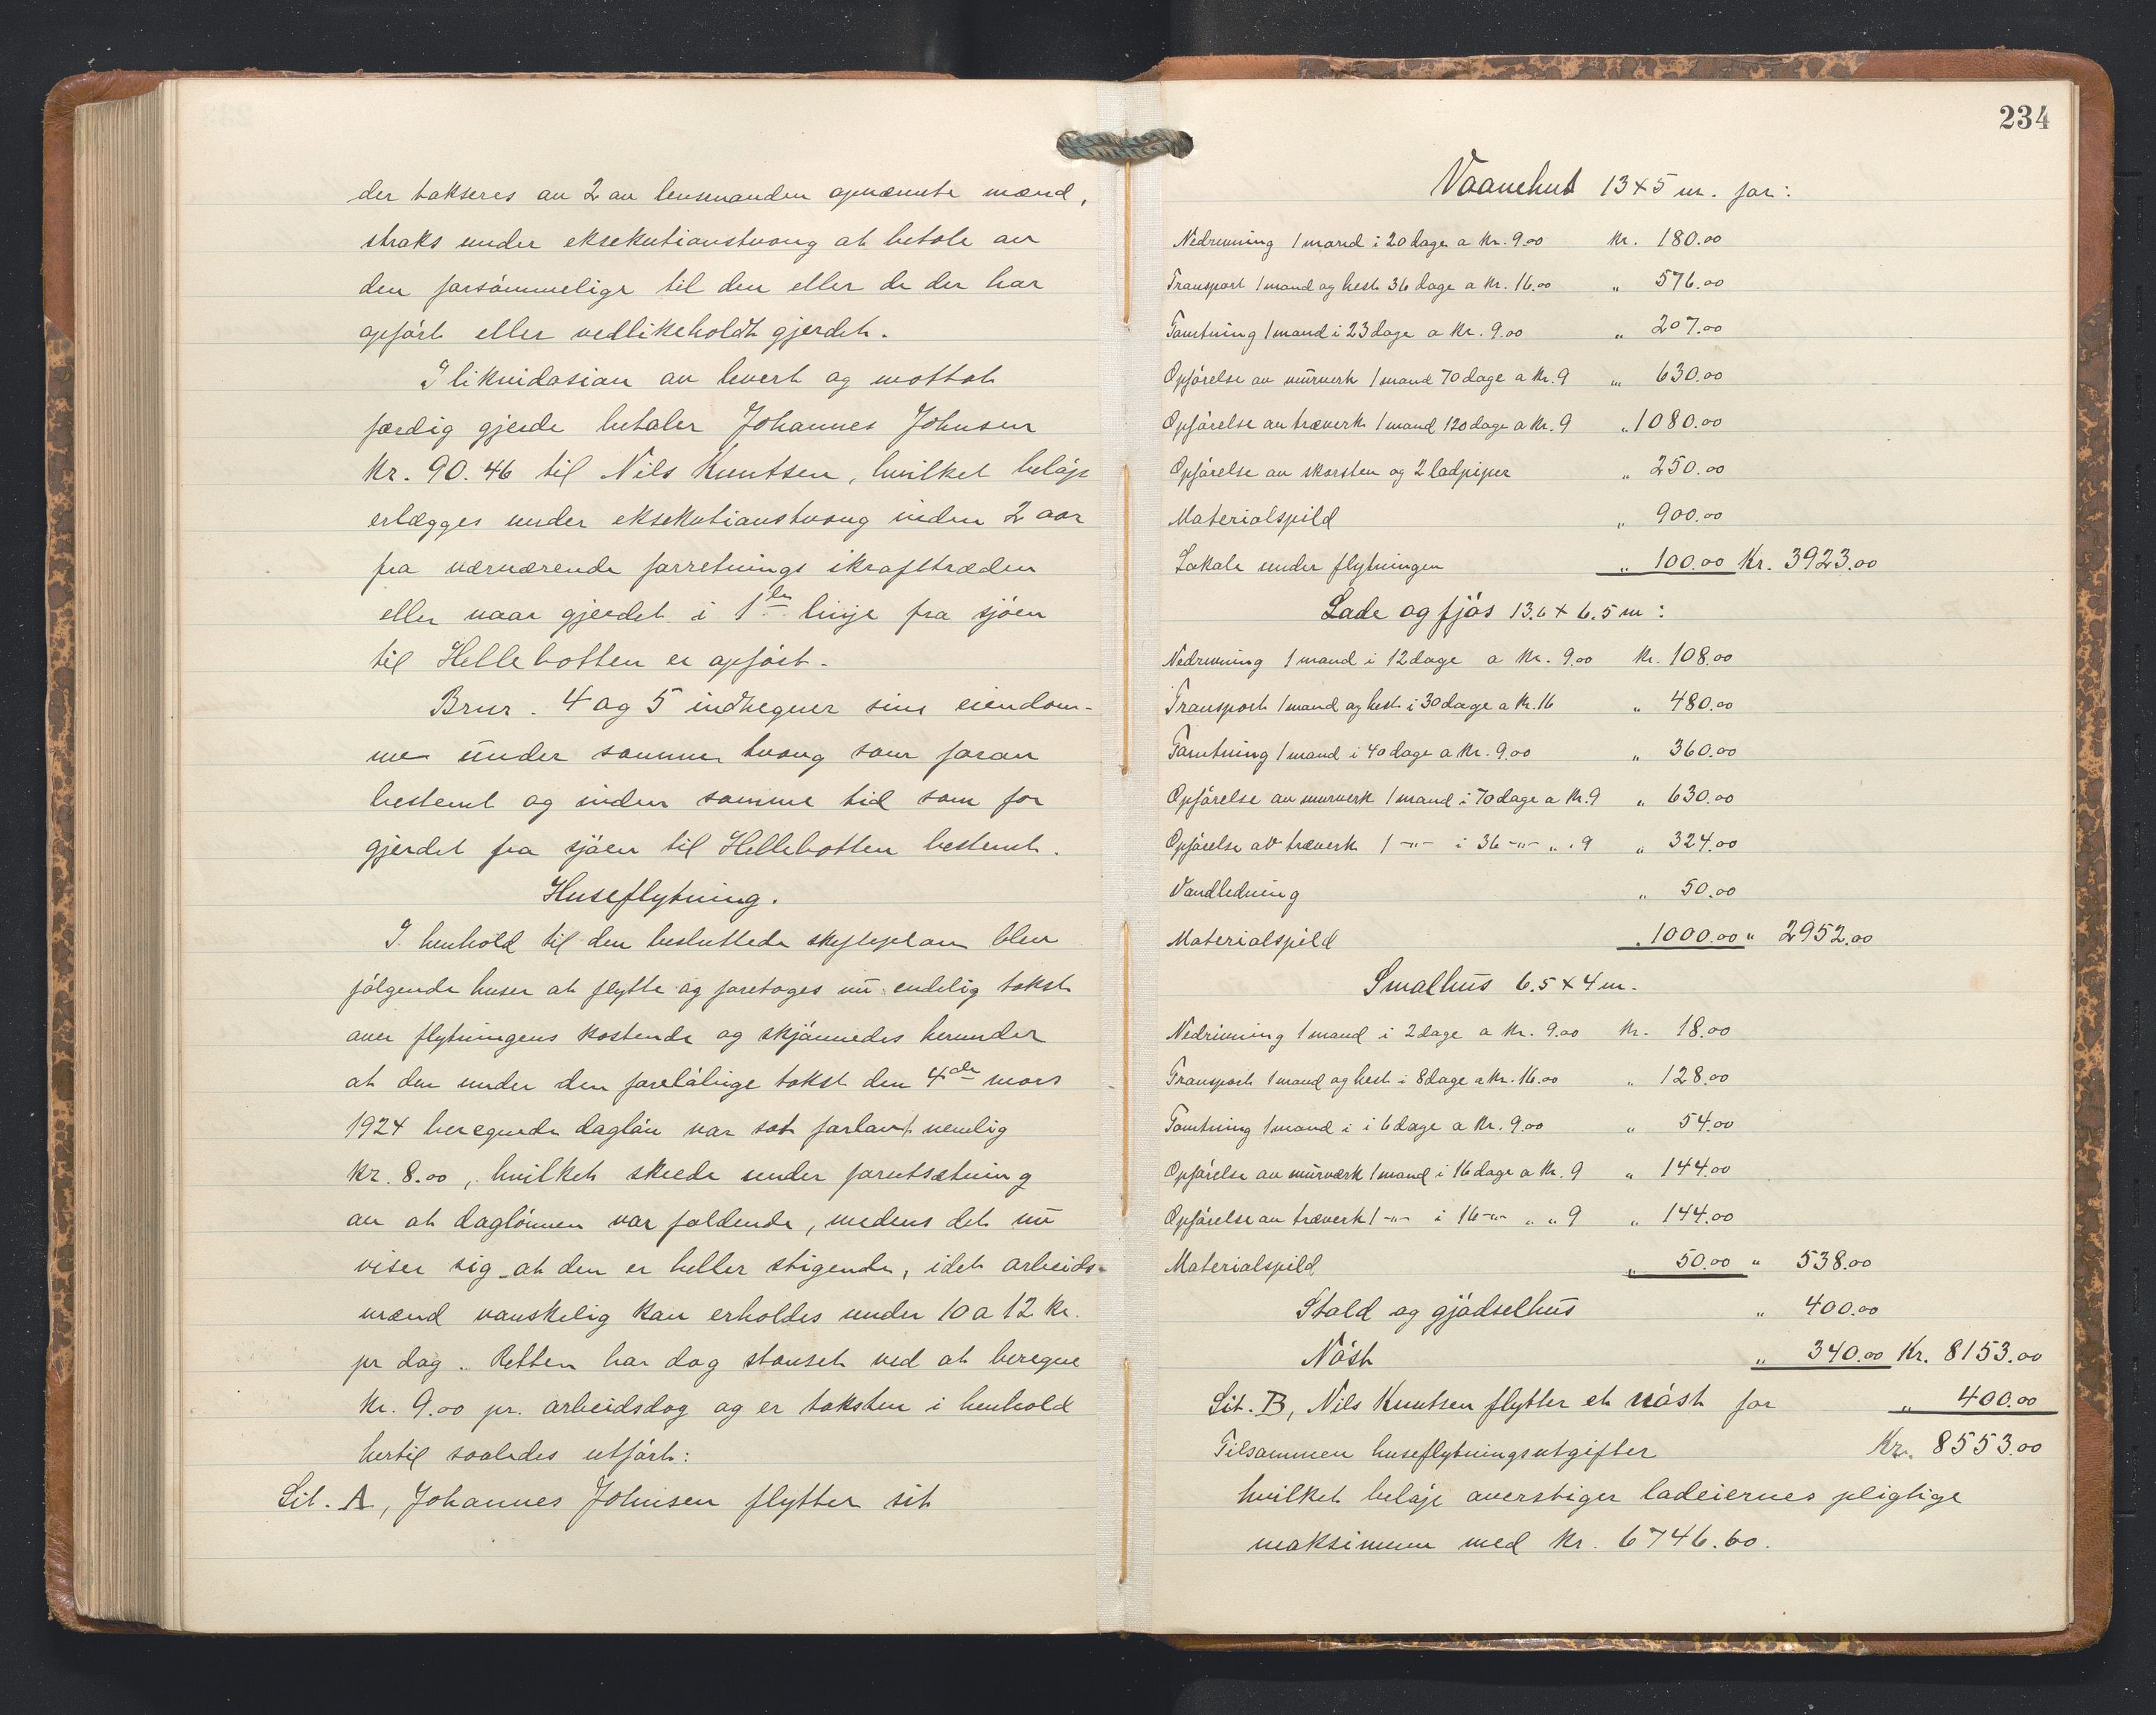 der takseres av 2 av lensmanden opnævnte mænd,
straks under eksekutionstvang at betale av
den forsømmelige til den eller de der har
opført eller vedlikeholdt gjerdet.
I likvidasion av levert og mottat
færdig gjerde betaler Johannes Johnsen
Kr. 90.46 til Nils Knutsen, hvilket beløp
erlægges under eksekutionstvang inden 2 aar
fra nærværende forretnings ikrafttræden
eller naar gjerdet i 1ste linje fra sjøen
til Hellebotten er opført.
Brnr. 4 og 5 indhegner sine eiendom-
me under samme tvang som foran
bestemt og inden samme tid som for
gjerdet fra sjøen til Hellebotten bestemt.
Huseflytning.
I henhold til den besluttede skifteplan blev
følgende huser at flytte og foretoges nu endelig takst
over flytningens kostende og skjønnedes herunder
at den under den foreløbige takst den 4de mars
1924 beregnede dagløn var sat forlavt nemlig
Kr. 8.00, hvilket skede under forutsætning
av at daglønnen var faldende, medens det nu
viser sig at den er heller stigende, idet arbeids-
mænd vanskelig kan erholdes under 10 a 12 kr.
pr dag. Retten har dog stanset ved at beregne
Kr. 9.00 pr. arbeidsdag og er taksten i henhold
hertil saaledes utført:
Lit. A, Johannes Johnsen flytter sit
234
Vaanehus 13 x 5 m. for:
Nedrivning 1 mand i 20 dage a Kr. 9.00 Kr. 180.00
Transport 1 mand og hest 36 dage a Kr. 16.00 " 576.00
Tomtning 1 mand i 23 dage a Kr. 9.00 " 207.00
Opførelse av murverk 1 mand 70 dage a Kr. 9 " 630.00
Opførelse av træverk 1 mand 120 dage a Kr. 9 " 1080.00
Opførelse av skorsten og 2 ladpiper " 250.00
Materialspild " 900.00
Lokale under flytningen " 100.00 Kr. 3923.00
Lade og fjøs 13.6 x 6.5 m:
Nedrivning 1 mand i 12 dage a Kr. 9.00 Kr. 108.00
Transport 1 mand og hest i 30 dage a Kr. 16 " 480.00
Tomtning 1 mand i 40 dage a Kr. 9.00 " 360.00
Opførelse av murverk 1 mand i 70 dage a Kr. 9 " 630.00
Opførelse av træverk 1 -"- i 36 -"- " " 9 " 324.00
Vandledning " 50.00
Materialspild " 1000.00 " 2952.00
Smalhus 6.5 x 4 m.
Nedrivning 1 mand i 2 dage a Kr. 9.00 Kr. 18.00
Transport 1 mand og hest i 8 dage a Kr. 16.00 " 128.00
Tomtning 1 mand i i 6 dage a Kr. 9.00 " 54.00
Opførelse av murværk 1 mand i 16 dage a Kr. 9 " 144.00
Opførelse av træverk 1 -"- i 16 -"- " " 9 " 144.00
Materialspild " 50.00 " 538.00
Stald og gjødselhus " 400.00
Nøst " 340.00 Kr. 8153.00
Lit. B, Nils Knutsen flytter et nøst for " 400.00
Tilsammen huseflytningsutgifter Kr. 8553.00
hvilket beløp overstiger lodeiernes pligtige
maksimum med Kr. 6746.60.